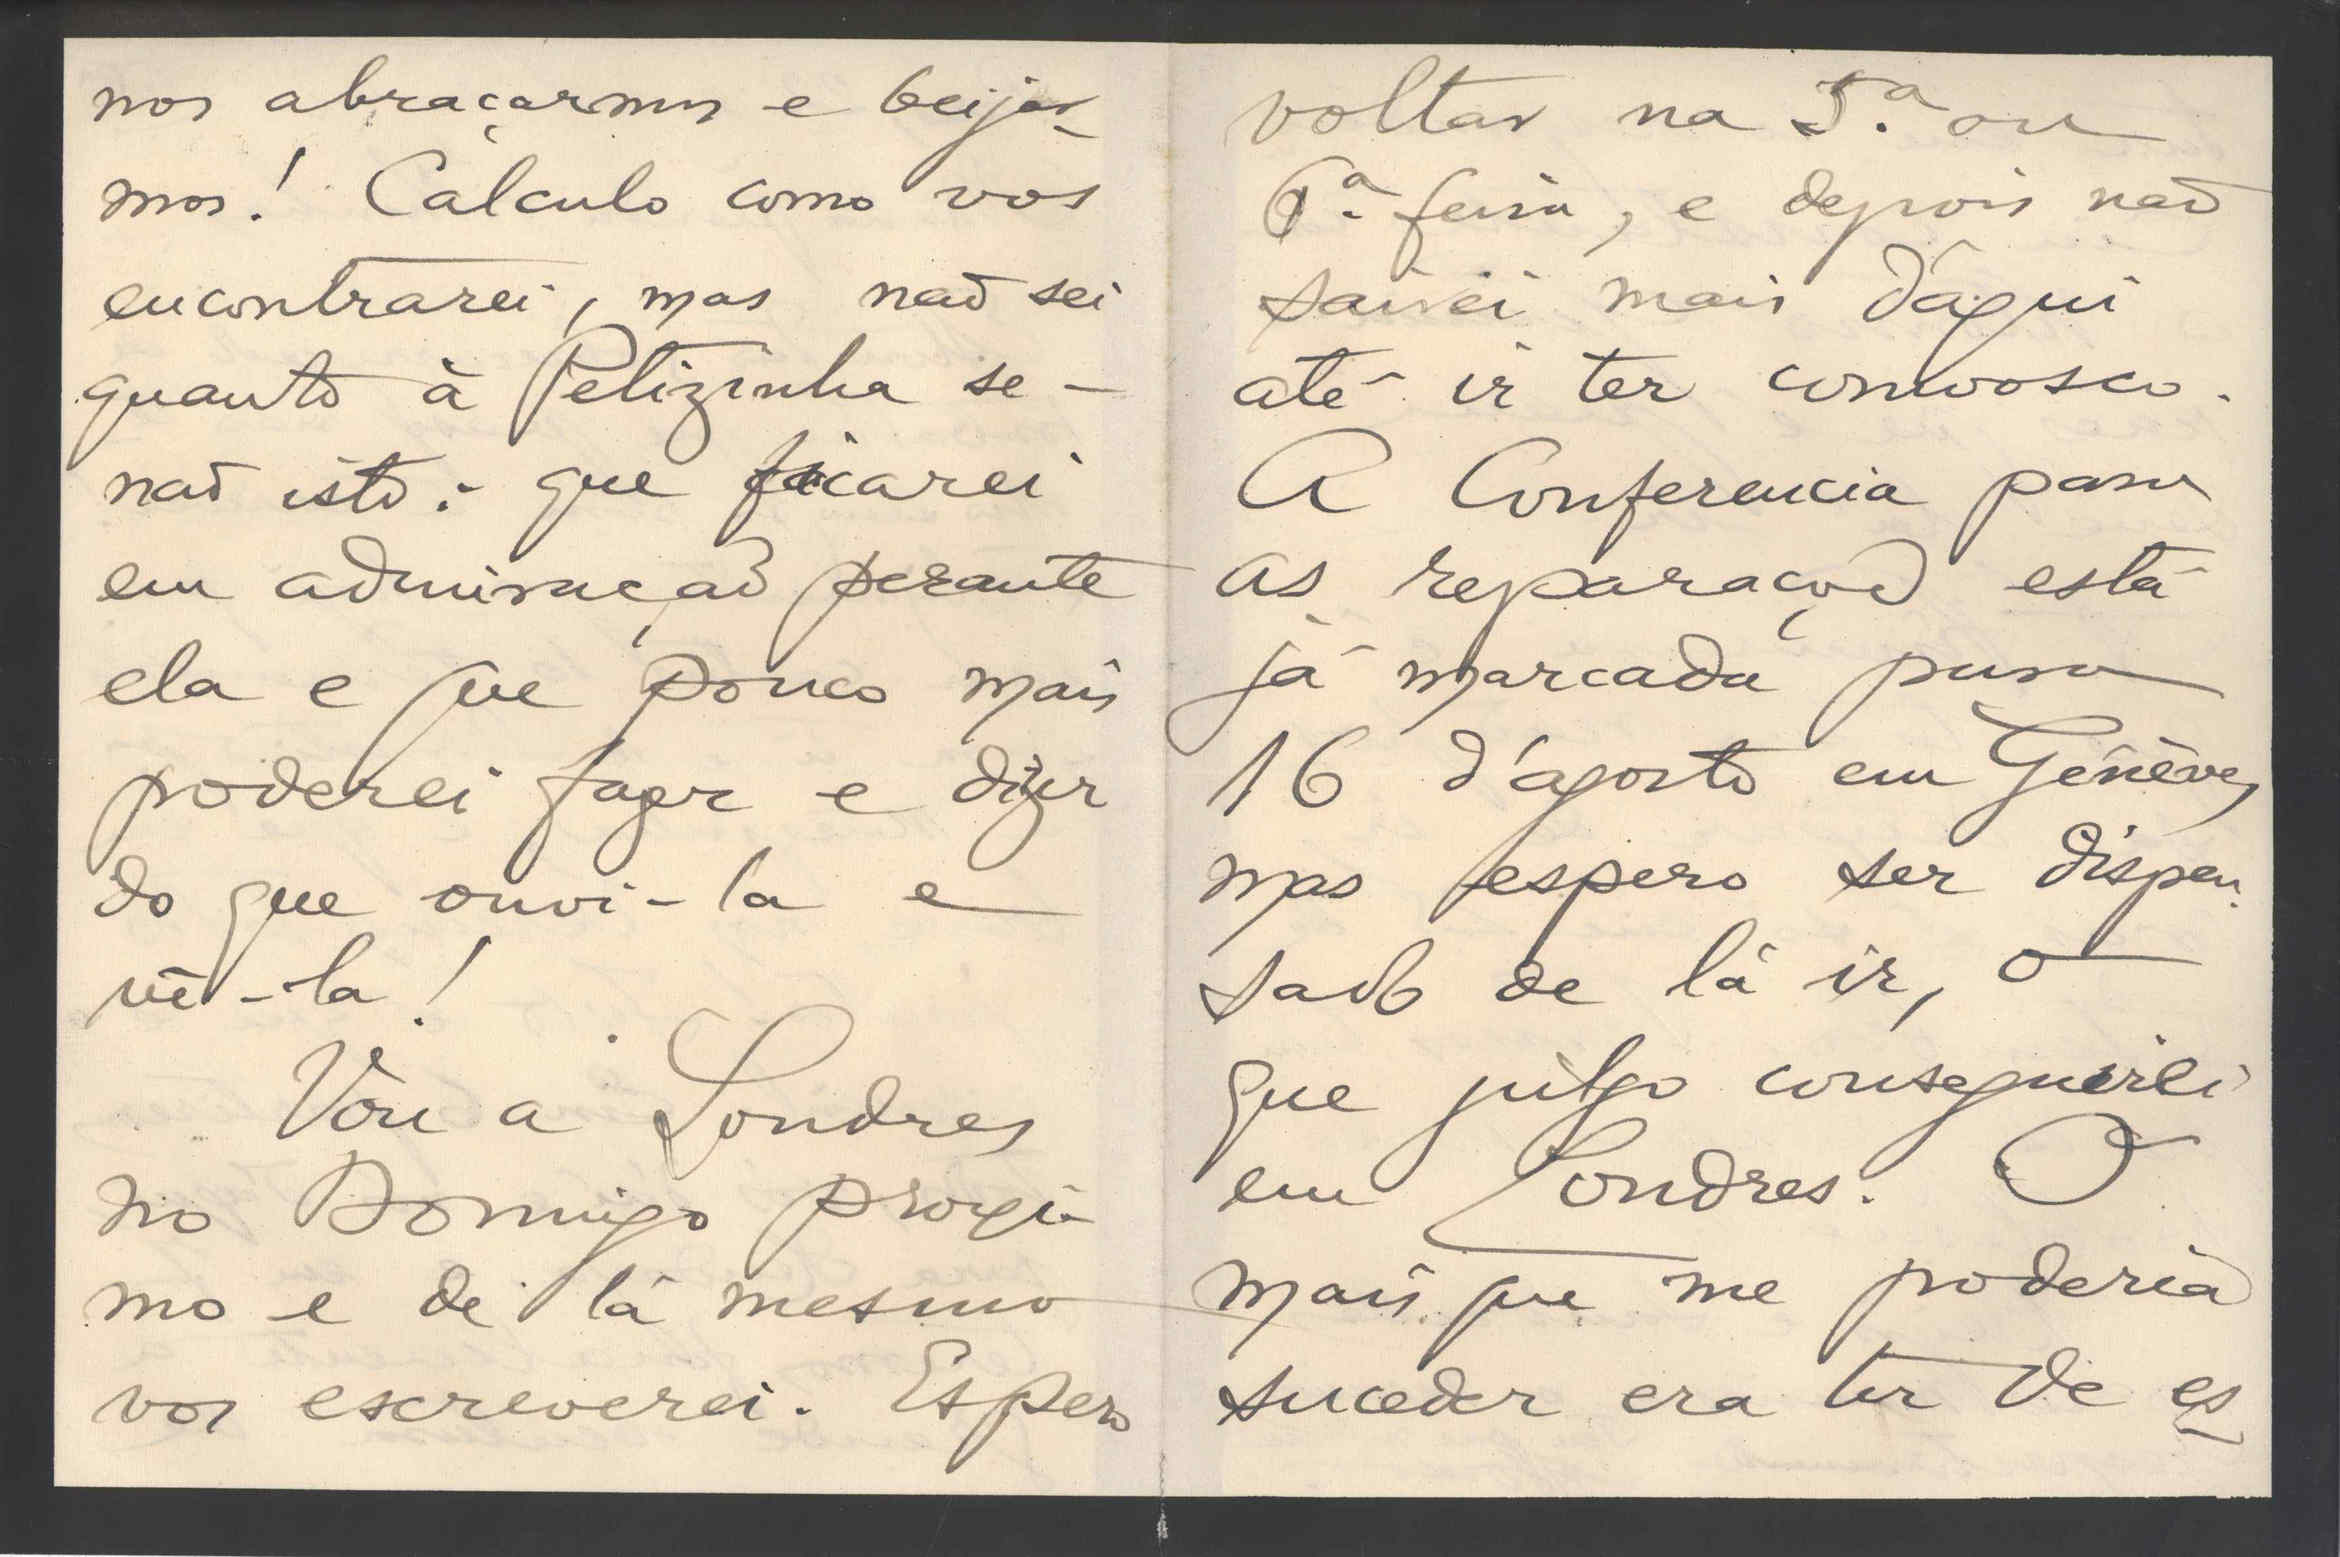 nos abraçarmos e beijar-
mos! Calculo como vos
encontrarei, mas não sei
quanto à Petizinha se-
não isto: que ficarei
em admiração perante
ela e que pouco mais
poderei fazer e dizer
do que ouvi-la e
vê-la!
Vou a Londres
no Domingo proxi-
mo e de lá mesmo
vos escreverei. Espero
voltar na 5.ª ou
6.ª feira, e depois não
sairei mais d'aqui
até ir ter comvosco.
A Conferencia para
as reparações está
já marcada para
16 d'agosto em Génève,
mas espero ser dispen-
sado de lá ir, o
que julgo conseguirei
em Londres. O
mais que me poderia
suceder era ter de es-